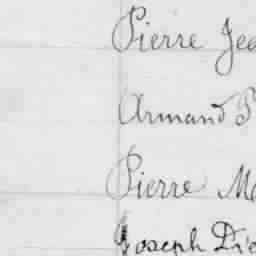 Pierre Jea
Armand P
Pierre Ma
Joseph Dio